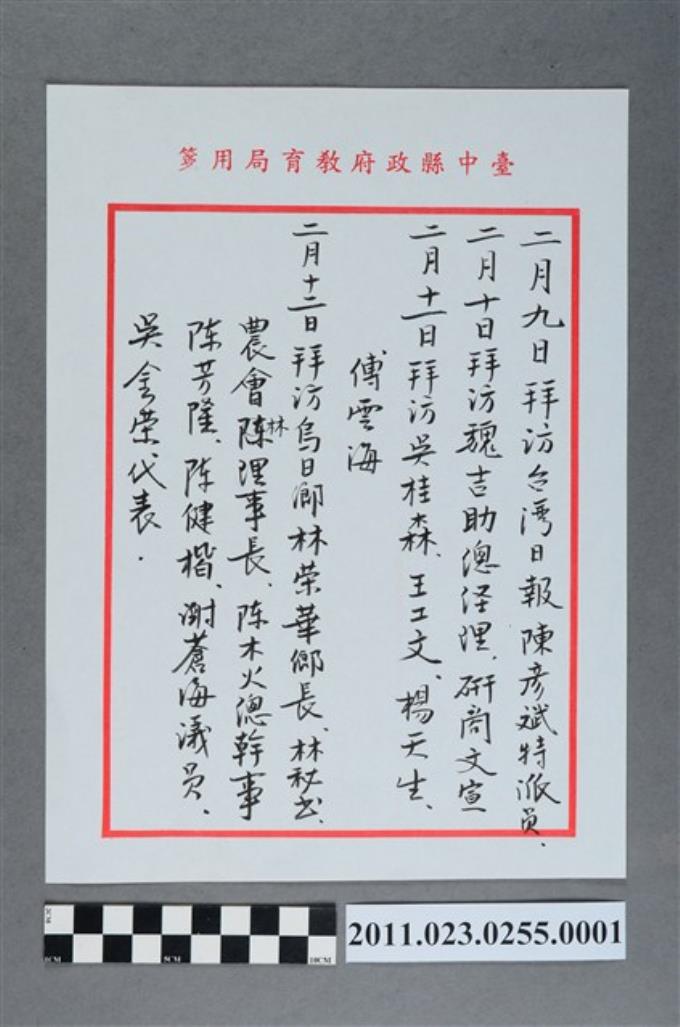 臺中縣政府教育局用箋
二月九日拜访台湾日報陳彦斌特派员、
二月十日拜访魏吉助總经理、研商文宣
二月十一日拜访吳桂森、王工文、楊天生、
傅雲海
二月十二日拜访烏日鄉林荣華鄉長、林秘书、
農會陈林理事長、陈木火總幹事
陈芳隆、陈健楷、谢蒼海議员、
吳金荣代表.
2CM
0CM
5CM
10CM
2011.023.0255.0001